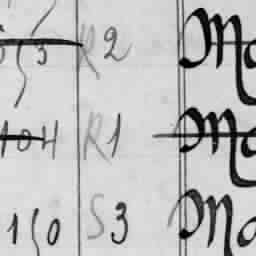 R2 Ma
104 R1 Ma
150 S3 Ma